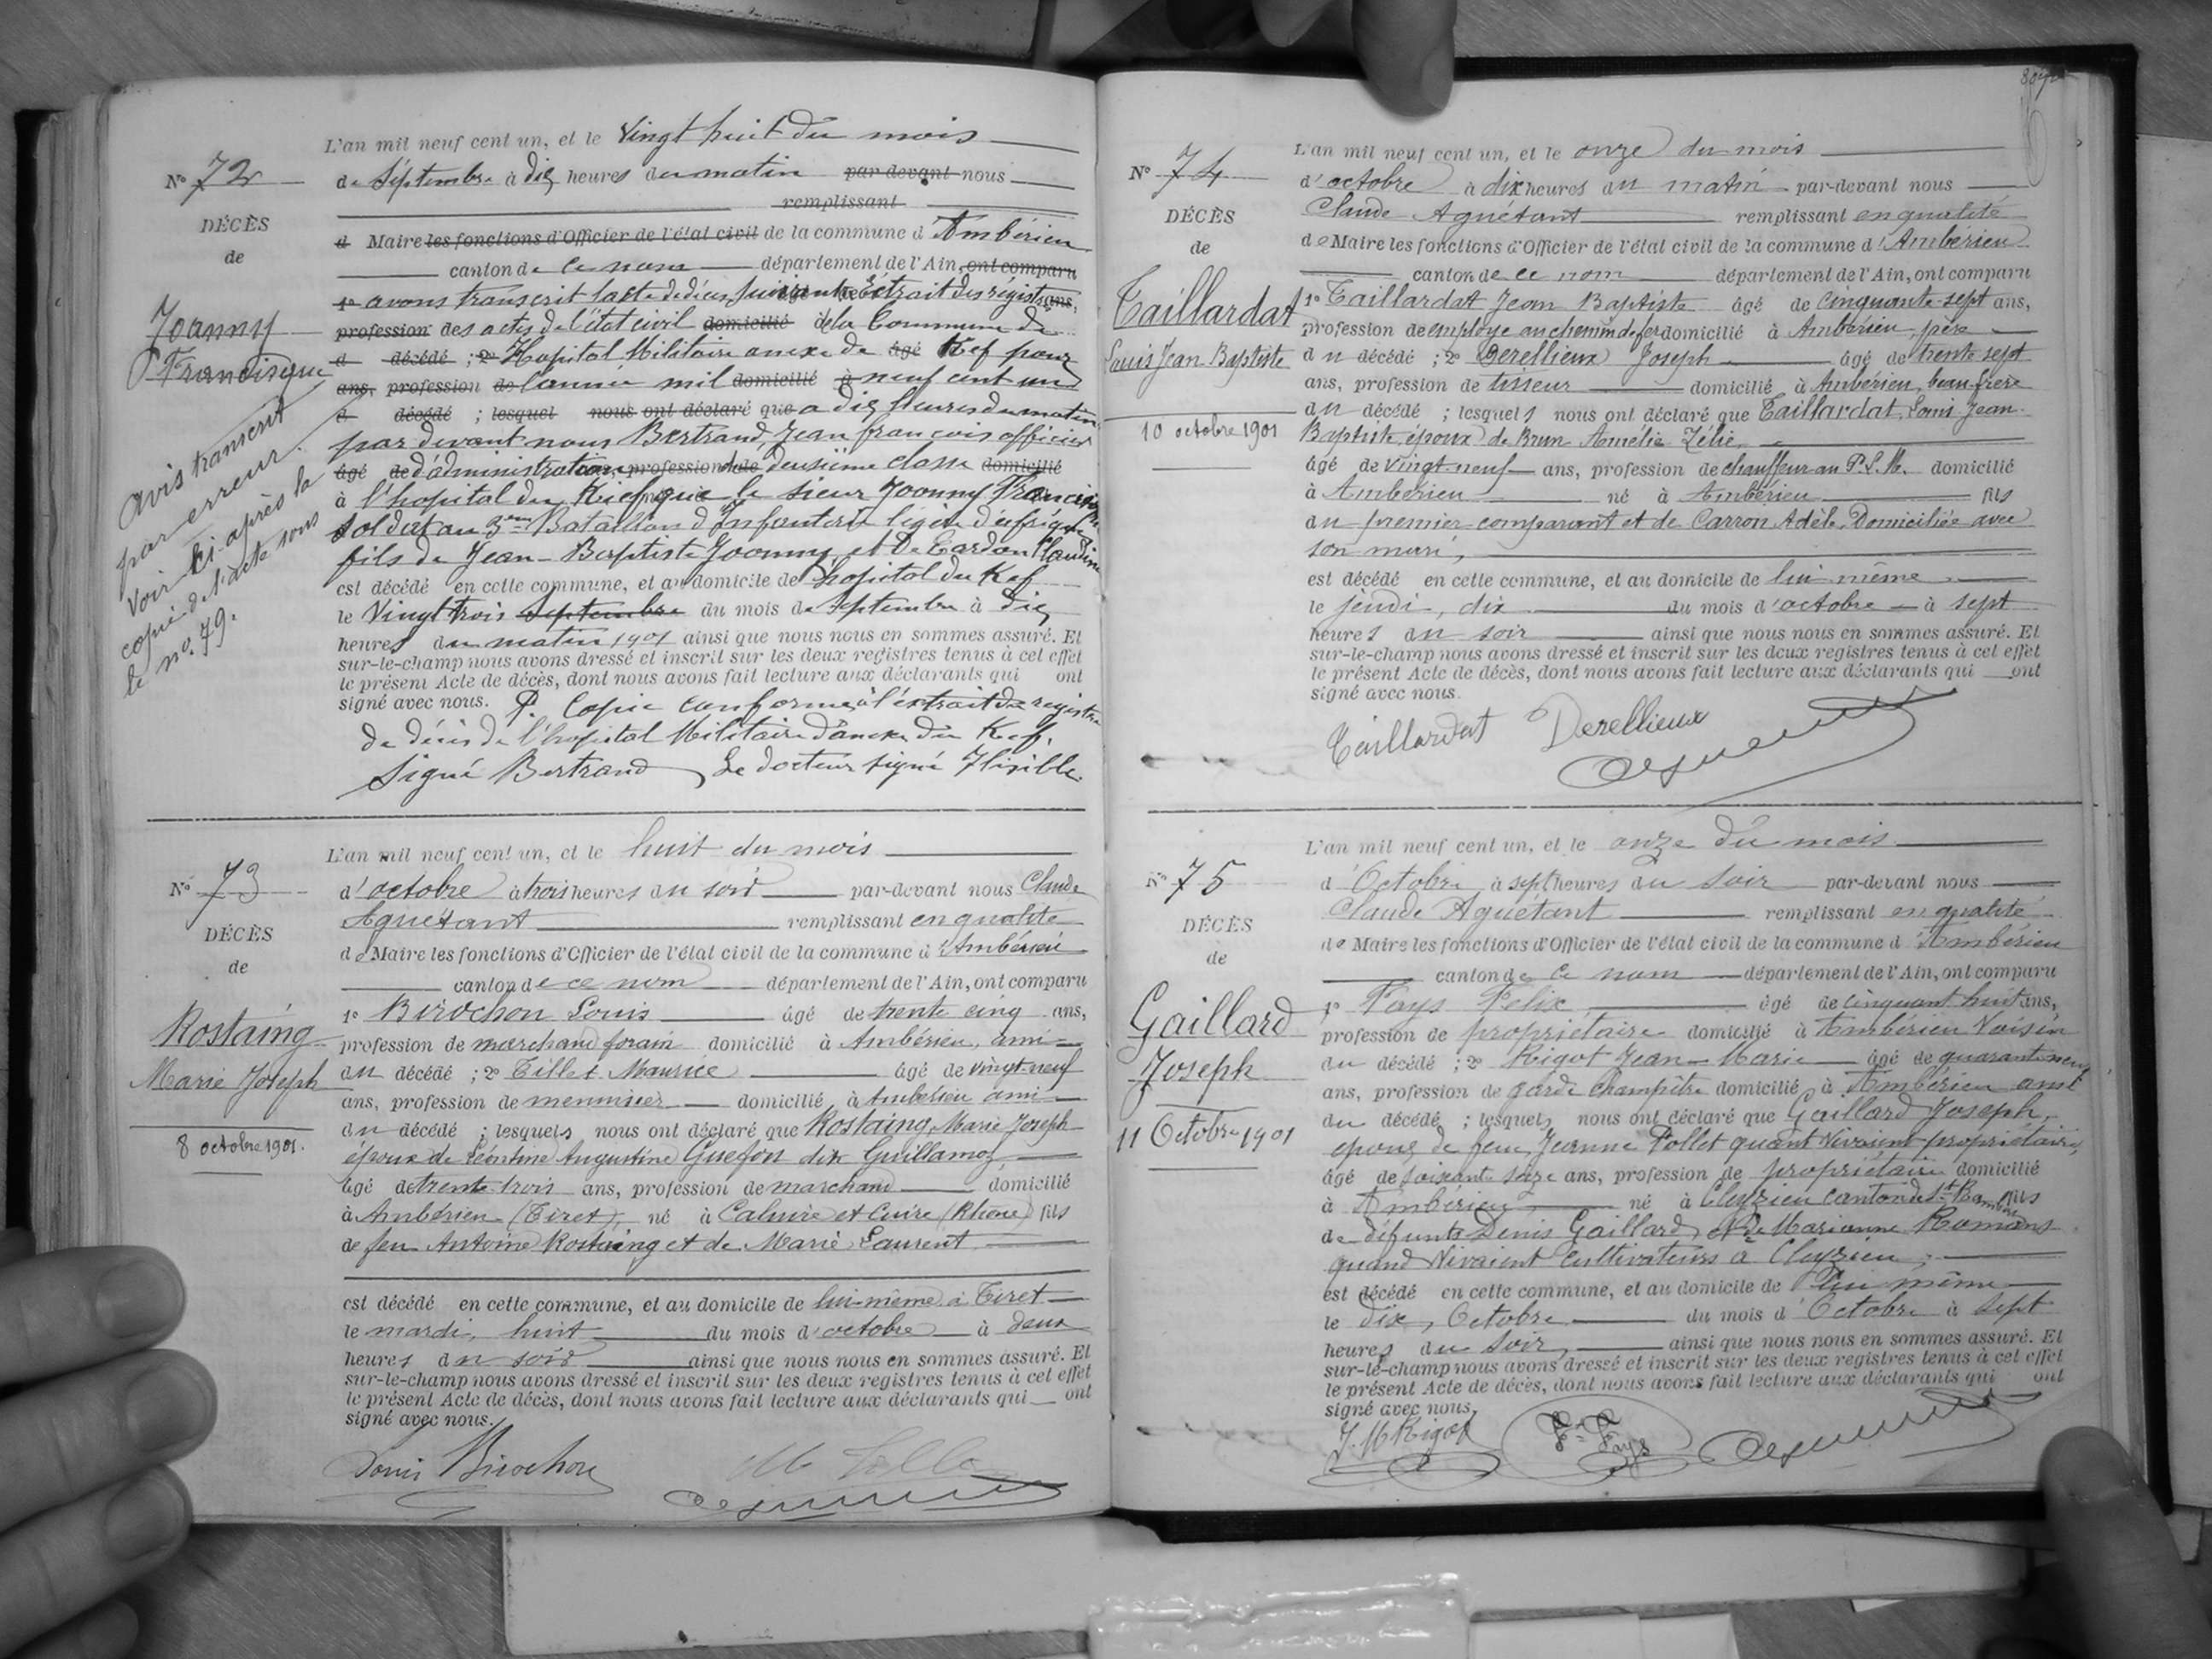 N° 72
DÉCÈS
de
Joanny
Francisque
Avis transcrit
par erreur.
Voir ci-après la
copie de l'acte sous
le no. 79.
L'an mil neuf cent un, et le Vingt huit du mois
de Septembre à dix heures du matin par devant nous
remplissant
d Maire les fonctions d'Officier de l'état civil de la commune d'Ambérieu
canton de ce nom département de l'Ain, ont comparu
1° avons transcrit l'acte de décès suivant Extrait des régistres ans,
profession des actes de l'état civil domicilié de la Commune de
d décédé ; 2° Hopital Militaire anexe de âgé Kef pour
ans, profession de l'année mil domicilié à neuf cent un
d décédé ; lesquel nous ont déclaré que a dix heures du matin
par devant nous Bertrand, Jean françois officier
âgé de d'administration profession de deusiième classe domicilié
à l'hopital du Kief que le sieur Joanny Francisque
Soldat au 3eme Bataillon d'Infanterie légère d'afrique
fils de Jean-Baptiste Joanny et De Cardon Claudine
est décédé en cette commune, et au domicile de l'hopital du Kef
le Vingt trois Septembre du mois de Septembre à dix
heures du matin 1901 ainsi que nous nous en sommes assuré. Et
sur-le-champ nous avons dressé et inscrit sur les deux registres tenus à cet effet
le présent Acte de décès, dont nous avons fait lecture aux déclarants qui ont
signé avec nous. P. Copie conforme à l'extrait de registre
de décès de l'hopital Militaire d'anexe du Kef.
Signé Bertrand Le docteur signé Ilisible.
N° 73
DÉCÈS
de
Rostaing
Marie Joseph
8 octobre 1901.
L'an mil neuf cent un, et le huit du mois
d'octobre à trois heures du soir par-devant nous Claude
Aguétant remplissant en qualité
de Maire les fonctions d'Officier de l'état civil de la commune d'Ambérieu
canton de ce nom département de l'Ain, ont comparu
1° Birochon Louis âgé de trente cinq ans,
profession de marchand forain domicilié à Ambérieu, ami
du décédé ; 2° Tillet Maurice âgé de vingt-neuf
ans, profession de menuisier domicilié à Ambérieu ami
du décédé ; lesquels nous ont déclaré que Rostaing, Marie Joseph
époux de Léontine Augustine Guefon dix Guillamoz,
âgé de trente trois ans, profession de marchand domicilié
à Ambérieu (Tiret), né à Caluire et Cuire (Rhône) fils
de feu Antoine Rostaing et de Marie Laurent
est décédé en cette commune, et au domicile de lui-même à Tiret
le mardi, huit du mois d'octobre à deux
heures du soir ainsi que nous nous en sommes assuré. Et
sur-le-champ nous avons dressé et inscrit sur les deux registres tenus à cet effet
le présent Acte de décès, dont nous avons fait lecture aux déclarants qui ont
signé avec nous.
Louis Birochon
N° 74
DÉCÈS
de
Taillardat
Louis Jean Baptiste
10 octobre 1901
L'an mil neuf cent un, et le onze du mois
d'octobre à dix heures du matin par-devant nous
Claude Aguétant remplissant en qualité
de Maire les fonctions d'Officier de l'état civil de la commune d'Ambérieu
canton de ce nom département de l'Ain, ont comparu
1° Taillardat Jean Baptiste âgé de Cinquante-sept ans,
profession de employé au chemin de fer domicilié à Ambérieu, père
du décédé ; 2° Derellieux Joseph âgé de trente sept
ans, profession de tisseur domicilié à Ambérieu, beau-frère
du décédé ; lesquels nous ont déclaré que Taillardat, Louis Jean
Baptiste, époux de Brun Amélie Zélie
âgé de vingt-neuf ans, profession de chauffeur au P.L.M. domicilié
à Ambérieu né à Ambérieu fils
du premier comparant et de Carron Adèle, Domiciliée avec
son mari,
est décédé en cette commune, et au domicile de lui même
le jeudi, dix du mois d'octobre à sept
heures du soir ainsi que nous nous en sommes assuré. Et
sur-le-champ nous avons dressé et inscrit sur les deux registres tenus à cet effet
le présent Acte de décès, dont nous avons fait lecture aux déclarants qui ont
signé avec nous.
Taillardat Derellieux
N° 75
DÉCÈS
de
Gaillard
Joseph
11 Octobre 1901
L'an mil neuf cent un, et le onze du mois
d'Octobre à sept heures du soir par-devant nous
Claude Aguétant remplissant en qualité
de Maire les fonctions d'Officier de l'état civil de la commune d'Ambérieu
canton de ce nom département de l'Ain, ont comparu
1° Fays Felix âgé de cinquant huit ans,
profession de propriétaire domicilié à Ambérieu Voisin
du décédé ; 2° Rigot Jean-Marie âgé de quarant neuf
ans, profession de garde champètre domicilié à Ambérieu ami
du décédé ; lesquels nous ont déclaré que Gaillard Joseph,
epoux de feue Jeanne Pollet quant vivaient propriétaires,
âgé de soixant seize ans, profession de propriétaire domicilié
à Ambérieu né à Cleyzieu canton de St Rambert fils
de défunts Denis Gaillard et de Marianne Romans
quand Vivaient Cultivateurs à Cleyzieu,
est décédé en cette commune, et au domicile de lui même
le dix, Octobre du mois d'Octobre à sept
heures du soir, ainsi que nous nous en sommes assuré. Et
sur-le-champ nous avons dressé et inscrit sur les deux registres tenus à cet effet
le présent Acte de décès, dont nous avons fait lecture aux déclarants qui ont
signé avec nous.
J. M Rigot F. Fays